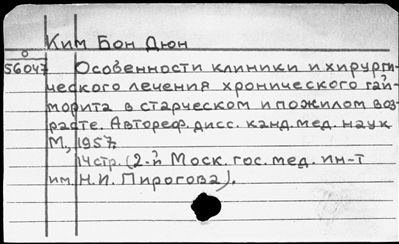 Ким Бон Дюн
о
56047 Особенности клиники и хирурги-
ческого лечения хронического гай-
морита в старческом и пожилом воз-
расте. Автореф. дисс. канд. мед. наук
М., 1957.
14 стр. (2-й Моск. гос. мед. ин-т
им. Н.И. Пирогова).